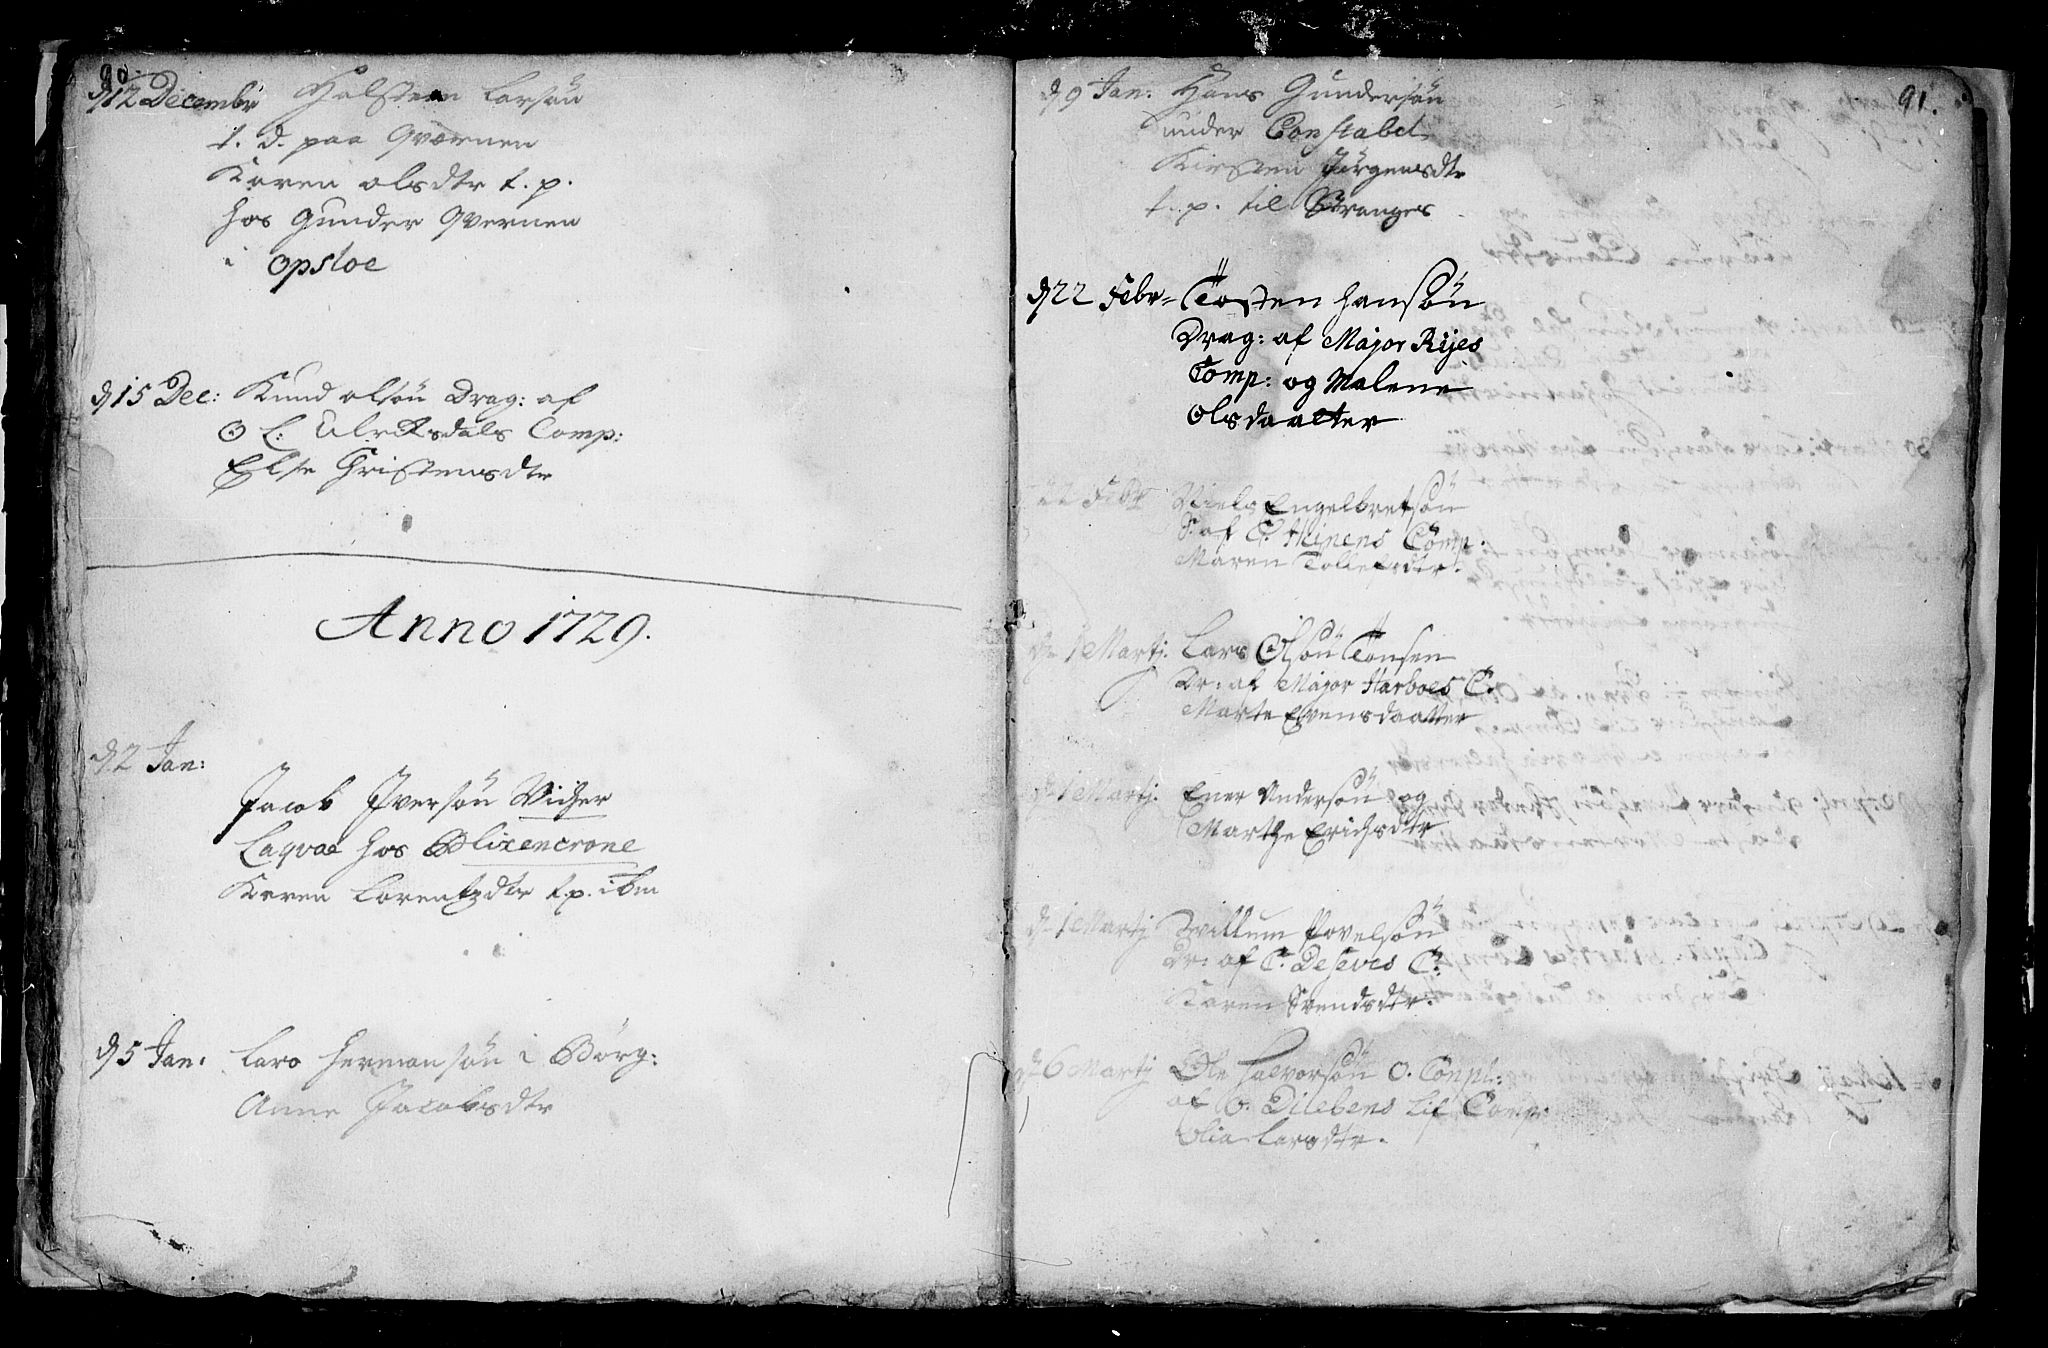 90.
d 12 Decembr Halsten Larsøn
t. d. paa Qværnen
Karen olsdtr t. p.
hos Gunder Qvernen
i Opsloe
d 15 Dec: Knud olsøn Drag: af
O L: Ulricksdals Comp:
Else Christensdtr
Anno 1729.
d 2 Jan:
Jacob Iversøn Vidzer
Laqvae hos Blixencrone
Karen Lorentzdtr t.p. ibm
d 5 Jan: Lars Hermansøn i Børg:
Anne Jacobsdtr
91.
d 9 Jan: Hans Gundersøn
under Constabel
Kirsten Jørgensdtr
t. p. til
d 22 Febr= Tosten Hansøn
Drag: af Major Rÿes
Comp: og Malene
Olsdaatter
22 Febr Niels Engelbretsøn
S. af C. Hinens Comp.
Maren Tollefsdtr.
d 1 Martj. Lars Olsøn Tonsen
Dr: af Major Harboes C.
Marte Evensdaatter
d 1 Martj. Ener Andersøn og
Marthe Erichsdtr
d 1 Martj Willum Povelsøn
Dr: af C. Deseves C:
Karen Svendsdtr.
d 6 Martj Ole Halvorsøn O. Conpl:
af O. Dilebens Lif Comp.
Olia Larsdtr.